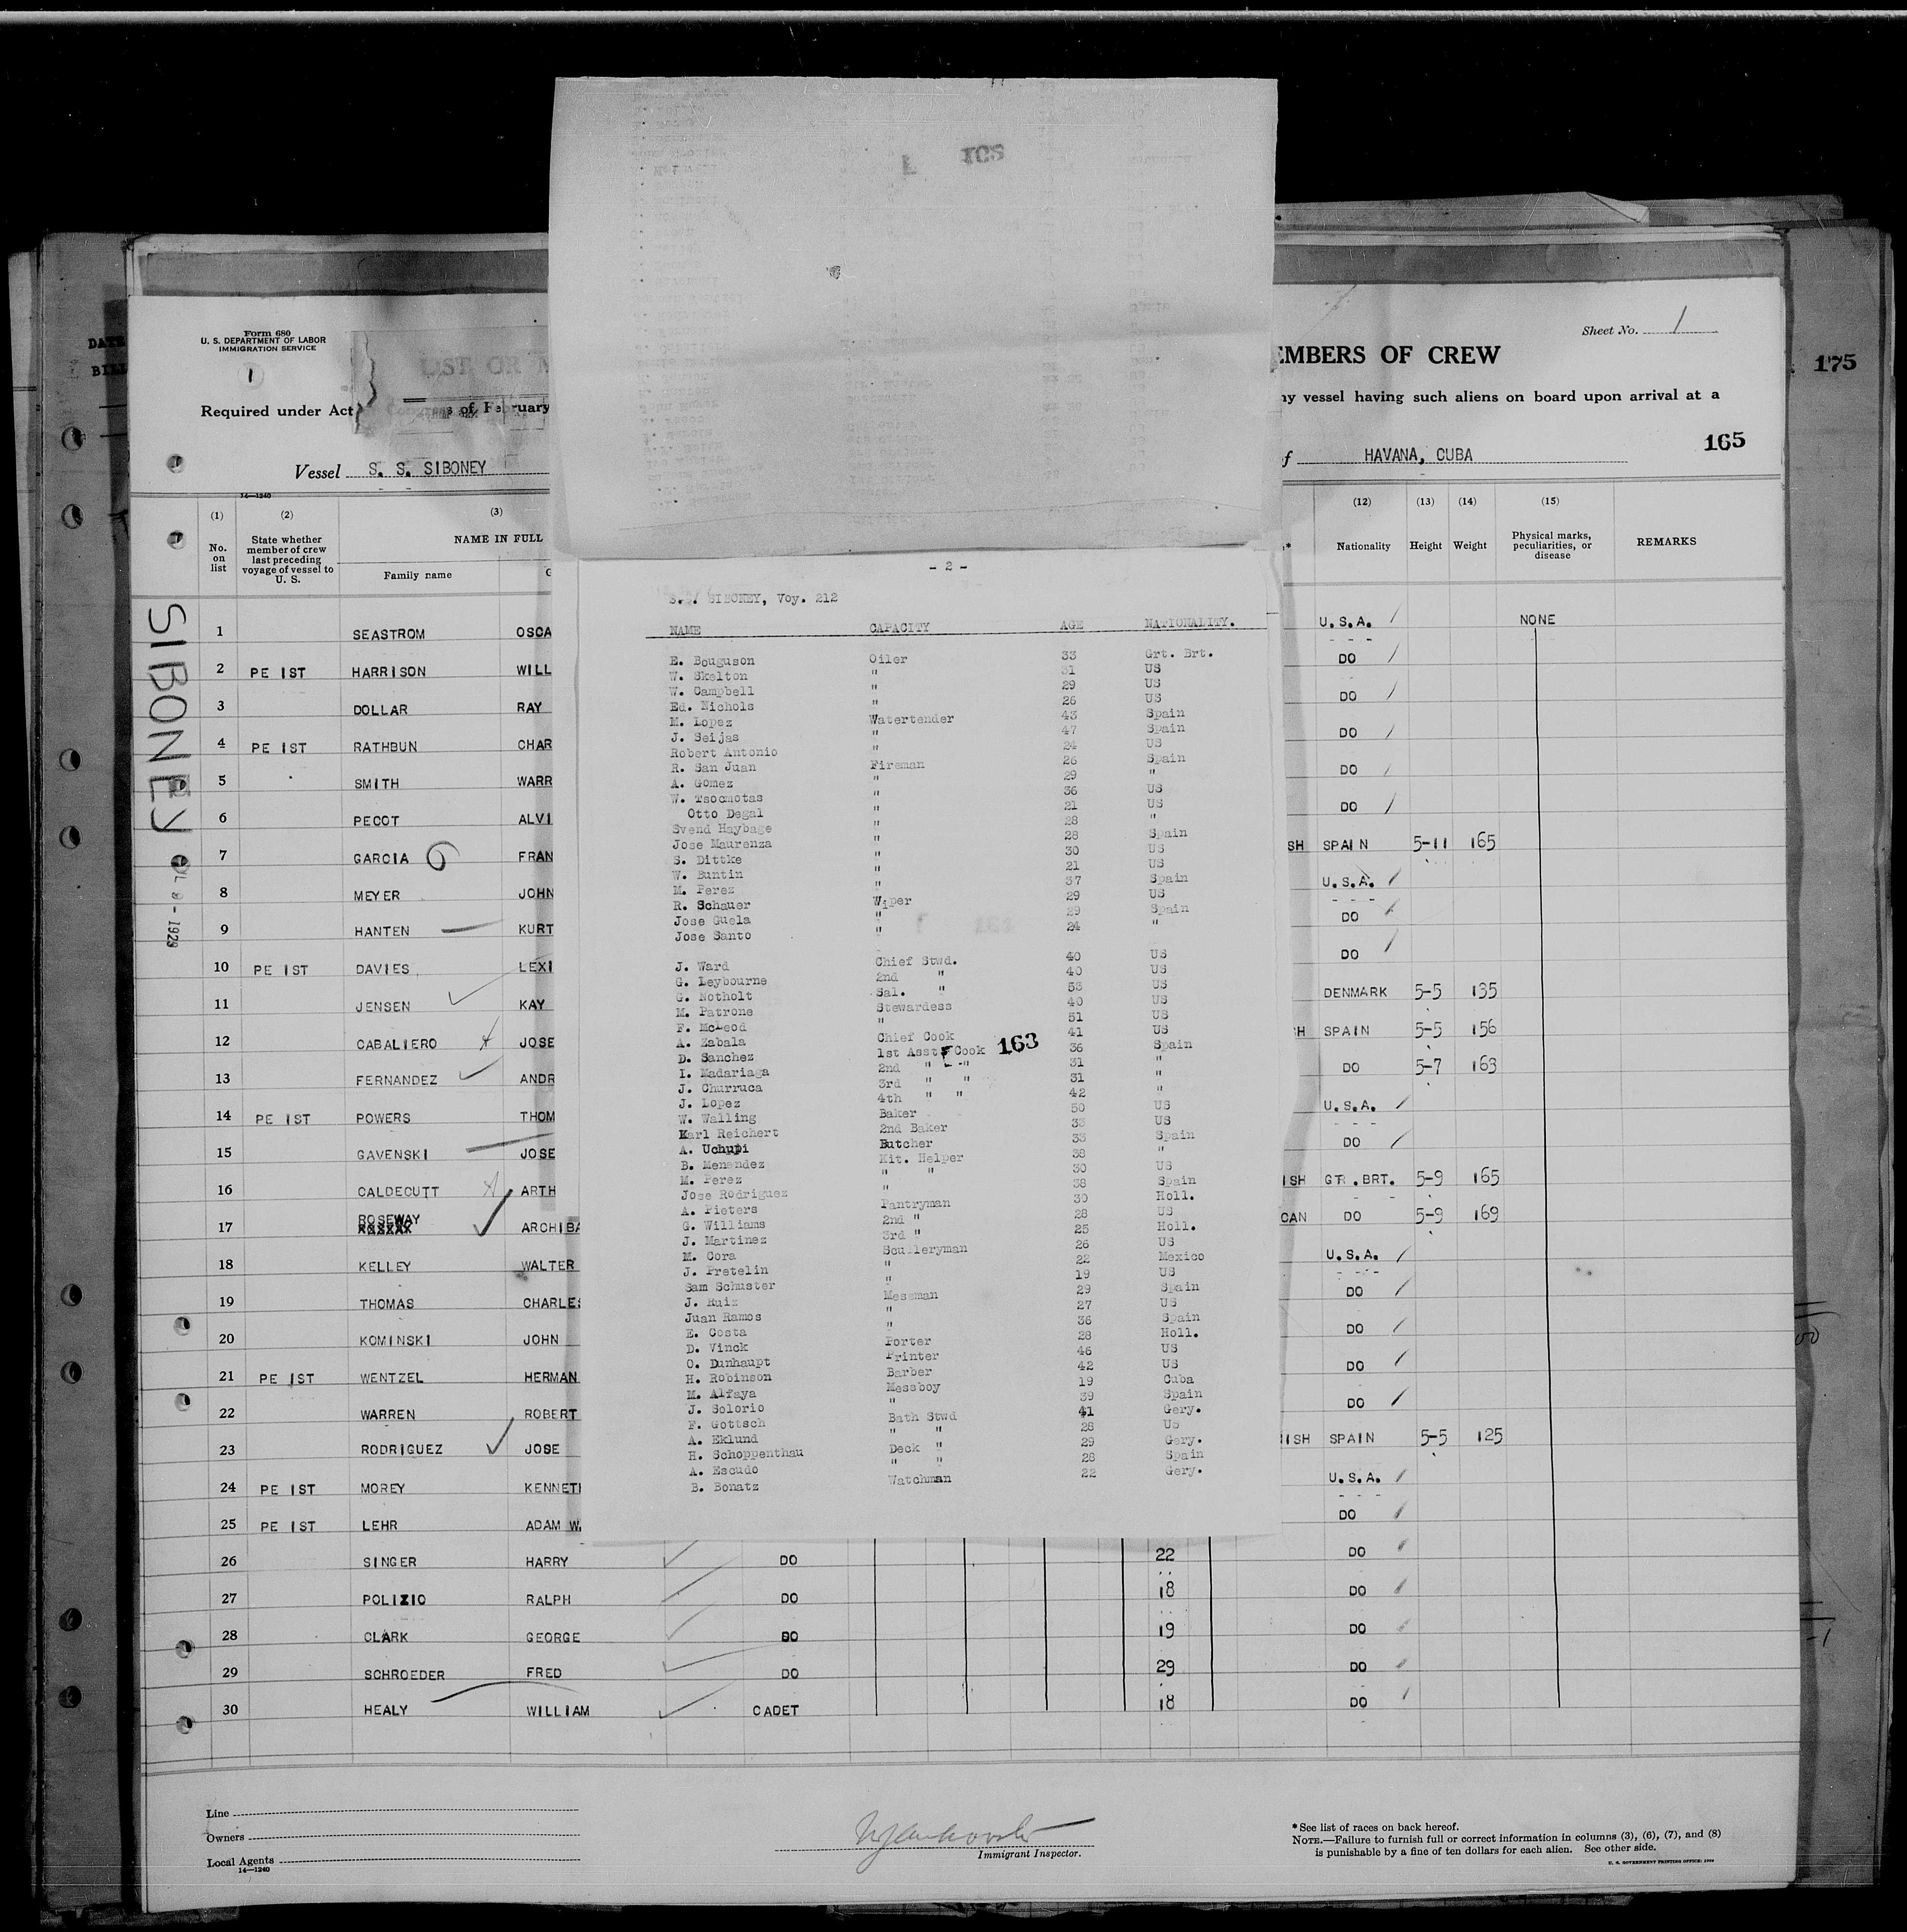 Form 680
U. S. DEPARTMENT OF LABOR
IMMIGRATION SERVICE
1
LIST OR
Required under Act
of February
Vessel S. S. SIBONEY
Sheet No. 1
EMBERS OF CREW
ny vessel having such aliens on board upon arrival at a
175
165
of HAVANA, CUBA
14—1240
(1) (2) (3) (12) (13) (14) (15)
No. on list State whether member of crew last preceding voyage of vessel to U. S. NAME IN FULL Nationality Height Weight Physical marks, peculiarities, or disease REMARKS
Family name
SIBONEY
1 SEASTROM OSCA U.S.A. NONE
2 PE IST HARRISON WILL DO
3 DOLLAR RAY DO
4 PE IST RATHBUN CHAR DO
5 SMITH WARR DO
6 PECOT ALVI DO
7 GARCIA FRAN SH SPAIN 5-11 165
8 MEYER JOHN U.S.A.
9 HANTEN KURT DO
10 PE IST DAVIES LEXI DO
11 JENSEN KAY DENMARK 5-5 135
12 CABALIERO JOSE H SPAIN 5-5 156
13 FERNANDEZ ANDR DO 5-7 163
14 PE IST POWERS THOM U.S.A.
15 GAVENSKI JOSE DO
16 CALDECUTT ARTH ISH GT. BRT. 5-9 165
17 ROSEWAY ARCHIBA CAN DO 5-9 169
18 KELLEY WALTER U.S.A.
19 THOMAS CHARLES DO
20 KOMINSKI JOHN DO
21 PE IST WENTZEL HERMAN DO
22 WARREN ROBERT DO
23 RODRIGUEZ JOSE ISH SPAIN 5-5 125
24 PE IST MOREY KENNETH U.S.A.
25 PE IST LEHR ADAM W. DO
26 SINGER HARRY DO 22 DO
27 POLIZIO RALPH DO 18 DO
28 CLARK GEORGE DO 19 DO
29 SCHROEDER FRED DO 29 DO
30 HEALY WILLIAM CADET 18 DO
- 2 -
S.S. SIBONEY, Voy. 212
NAME CAPACITY AGE NATIONALITY.
E. Bouguson Oiler 33 Grt. Brt.
W. Skelton " 31 US
W. Campbell " 29 US
Ed. Nichols " 26 US
M. Lopez Watertender 43 Spain
J. Seijas " 47 Spain
Robert Antonio " 24 US
R. San Juan Fireman 26 Spain
A. Gomez " 29 "
W. Tsocmotas " 36 US
Otto Degal " 21 US
Svend Haybage " 28 "
Jose Maurenza " 28 Spain
S. Dittke " 30 US
W. Buntin " 21 US
M. Perez " 37 Spain
R. Schauer Wiper 29 US
Jose Guela " 29 Spain
Jose Santo " 24 "
J. Ward Chief Stwd. 40 US
G. Leybourne 2nd " 40 US
G. Notholt Sal. " 53 US
M. Patrone Stewardess 40 US
F. McLeod " 51 US
A. Zabala Chief Cook 41 US
D. Sanchez 1st Asst Cook 36 Spain
163
I. Madariaga 2nd " " 31 "
J. Churruca 3rd " " 31 "
J. Lopez 4th " " 42 "
W. Walling Baker 50 US
Karl Reichert 2nd Baker 33 US
A. Uchupi Butcher 33 Spain
B. Menendez Kit. Helper 38 "
M. Perez " " 30 US
Jose Rodriguez " 38 Spain
A. Pieters Pantryman 30 Holl.
G. Williams 2nd " 28 US
J. Martinez 3rd " 25 Holl.
M. Cora Sculleryman 26 US
J. Pretelin " 22 Mexico
Sam Schuster " 19 US
J. Ruiz Messman 29 Spain
Juan Ramos " 27 US
E. Costa " 36 Spain
D. Vinck Porter 28 Holl.
O. Dunhaupt Printer 46 US
H. Robinson Barber 42 US
M. Alfaya Messboy 19 Cuba
J. Solorio " 39 Spain
F. Gottsch Bath Stwd 41 Gery.
A. Eklund " " 28 US
H. Schoppenthau Deck " 29 Gery.
A. Escudo " " 28 Spain
B. Bonatz Watchman 22 Gery.
Line
Owners
Local Agents
14—1240
Immigrant Inspector.
* See list of races on back hereof.
NOTE.—Failure to furnish full or correct information in columns (3), (6), (7), and (8)
is punishable by a fine of ten dollars for each alien. See other side.